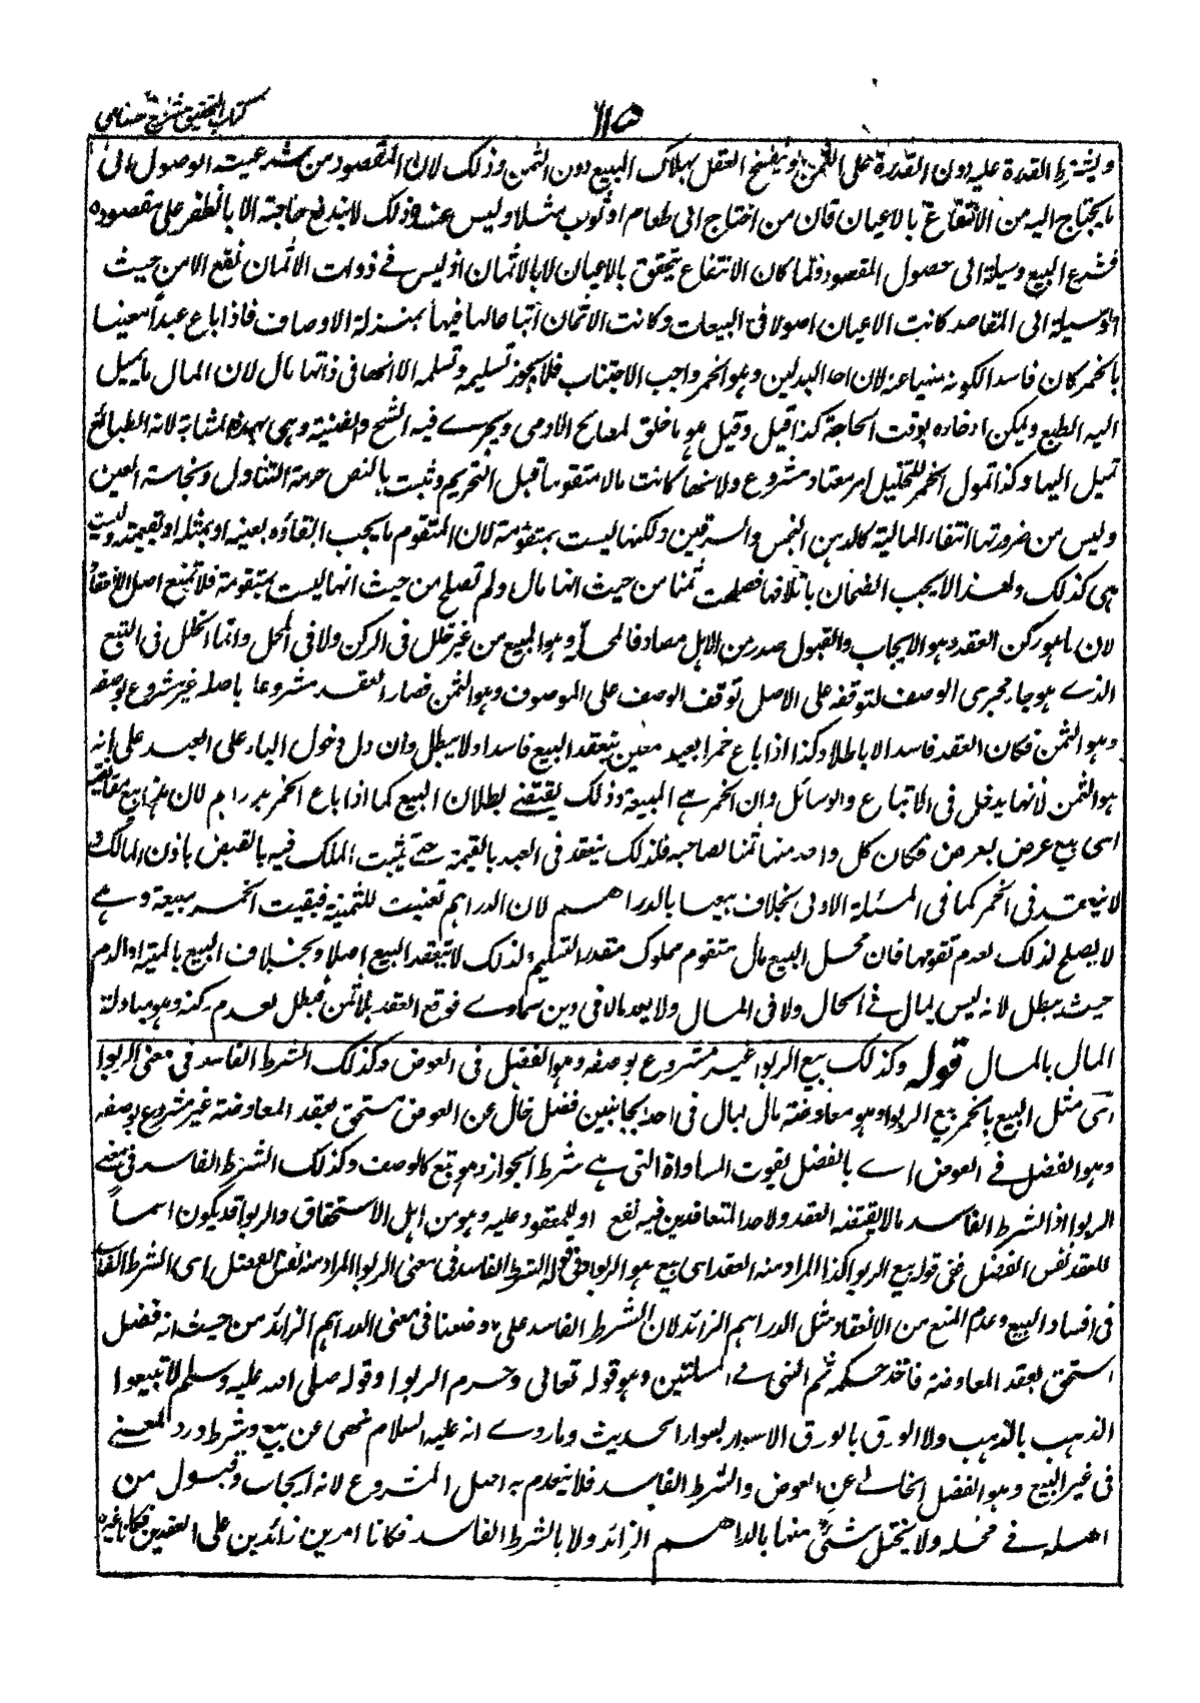 كتاب التحقيق شرح حسامى
١١٥
ويشترط القدرة عليه دون القدرة على الثمن وينفسخ العقد بهلاك المبيع دون الثمن وذلك لان المقصود من شرعيت الوصول الى
ما يحتاج اليه من الانتفاع بالاعيان فان من احتاج الى طعام او ثوب مثلا وليس عنده ذلك لا يندفع حاجته الا بالظفر على مقصوده
فشرع البيع وسيلة الى حصول المقصود ولما كان الانتفاع يتحقق بالاعيان لا بالاثمان اذ ليس فى ذوات الاثمان نفع الا من حيث
الوسيلة الى المقاصد كانت الاعيان اصولا فى البيعات وكانت الاثمان اتباعا لها فيها بمنزلة الاوصاف فاذا باع عبدا معينا
بالخمر كان فاسدا لكونه منهيا عنه لان احد البدلين وهو الخمر واجب الاجتناب فلا يجوز تسليمه وتسلمه الا انها فى ذاتها مال لان المال ما يميل
اليه الطبع ويمكن ادخاره لوقت الحاجة كذا قيل وقيل هو ما خلق لمصالح الآدمى ويجرى فيه الشح والضنة وهى بهذه المثابة لانه الطبائع
تميل اليها وكذا تمول الخمر للتخليل امر معتاد مشروع ولانها كانت مالا متقوما قبل التحريم وثبت بالنص حرمة التناول ونجاسة العين
وليس من ضرورتها انتفاء المالية كالدهن النجس والسرقين ولكنها ليست بمتقومة لان المتقوم ما يجب ابقاؤه بعينه او بمثله او بقيمته وليست
هى كذلك ولهذا لا يجب الضمان باتلافها فصلحت ثمنا من حيث انها مال ولم تصلح من حيث انها ليست بمتقومة فلا تمنع اصل الانعقاد
لان ما هو ركن العقد وهو الايجاب والقبول صدر من الاهل مصادفا لمحله وهو المبيع من غير خلل فى الركن ولا فى المحل وانما الخلل فى التبع
الذى هو جار مجرى الوصف لتوقفه على الاصل توقف الوصف على الموصوف وهو الثمن فصار العقد مشروعا باصله غير مشروع بوصفه
وهو الثمن فكان العقد فاسدا لا باطلا وكذا اذا باع خمرا بعبد معين ينعقد البيع فاسدا ولا يبطل وان دل دخول الباء على العبد على انه
هو الثمن لانها يدخل فى الاتباع والوسائل وان الخمر هى المبيعة وذلك يقتضى بطلان البيع كما اذا باع الخمر بدراهم لان هذا بيع مقايضة
اى بيع عرض بعرض فكان كل واحد منها ثمنا لصاحبه فلذلك ينعقد فى العبد بالقيمة حتى يثبت الملك فيه بالقبض باذن المالك و
لا ينعقد فى الخمر كما فى المسئلة الاولى بخلاف بيعها بالدراهم لان الدراهم تعينت للثمنية فبقيت الخمر مبيعة وهى
لا يصلح لذلك لعدم تقومها فان محل البيع مال متقوم مملوك مقدور التسليم ولذلك لا ينعقد البيع اصلا وبخلاف البيع بالميتة او الدم
حيث يبطل لانه ليس بمال فى الحال ولا فى المآل ولا يعد مالا فى دين سماوى فوقع العقد بلا ثمن فبطل لعدم ركنه وهو مبادلة
المال بالمال قوله وكذلك بيع الربوا غير مشروع بوصفه وهو الفضل فى العوض وكذلك الشرط الفاسد فى معنى الربوا
اى مثل البيع بالخمر بيع الربوا وهو معاوضة مال بمال فى احد الجانبين فضل خال عن العوض مستحق بعقد المعاوضة غير مشروع بوصفه
وهو الفضل فى العوض اى بالفضل يفوت المساواة التى هى شرط الجواز وهو تبع كالوصف وكذلك الشرط الفاسد فى معنى
الربوا اذ الشرط الفاسد ما لا يقتضيه العقد ولاحد المتعاقدين فيه نفع او للمعقود عليه وهو من اهل الاستحقاق والربوا قد يكون اسما
للعقد لنفس الفضل ففى قوله بيع الربوا كذا المراد منه العقد اى بيع هو الربوا وفى قوله الشرط الفاسد فى معنى الربوا المراد منه نفس الفضل اى الشرط الفاسد
فى افساد البيع وعدم المنع من الانعقاد مثل الدراهم الزائد لان الشرط الفاسد على ما وضعنا فى معنى الدراهم الزائد من حيث انه فضل
استحق بعقد المعاوضة فاخذ حكمه ثم النهى فى المسئلتين وهو قوله تعالى وحرم الربوا وقوله صلى الله عليه وسلم لا تبيعوا
الذهب بالذهب ولا الورق بالورق الا سواء بسواء الحديث وما روى انه عليه السلام نهى عن بيع وشرط ورد لمعنى
فى غير البيع وهو الفضل الخالى عن العوض والشرط الفاسد فلا ينعدم به اصل المشروع لانه ايجاب وقبول من
اهله فى محله ولا يختل شئ منها بالدراهم الزائد ولا بالشرط الفاسد فكانا امرين زائدين على العقدين فكانا غيره